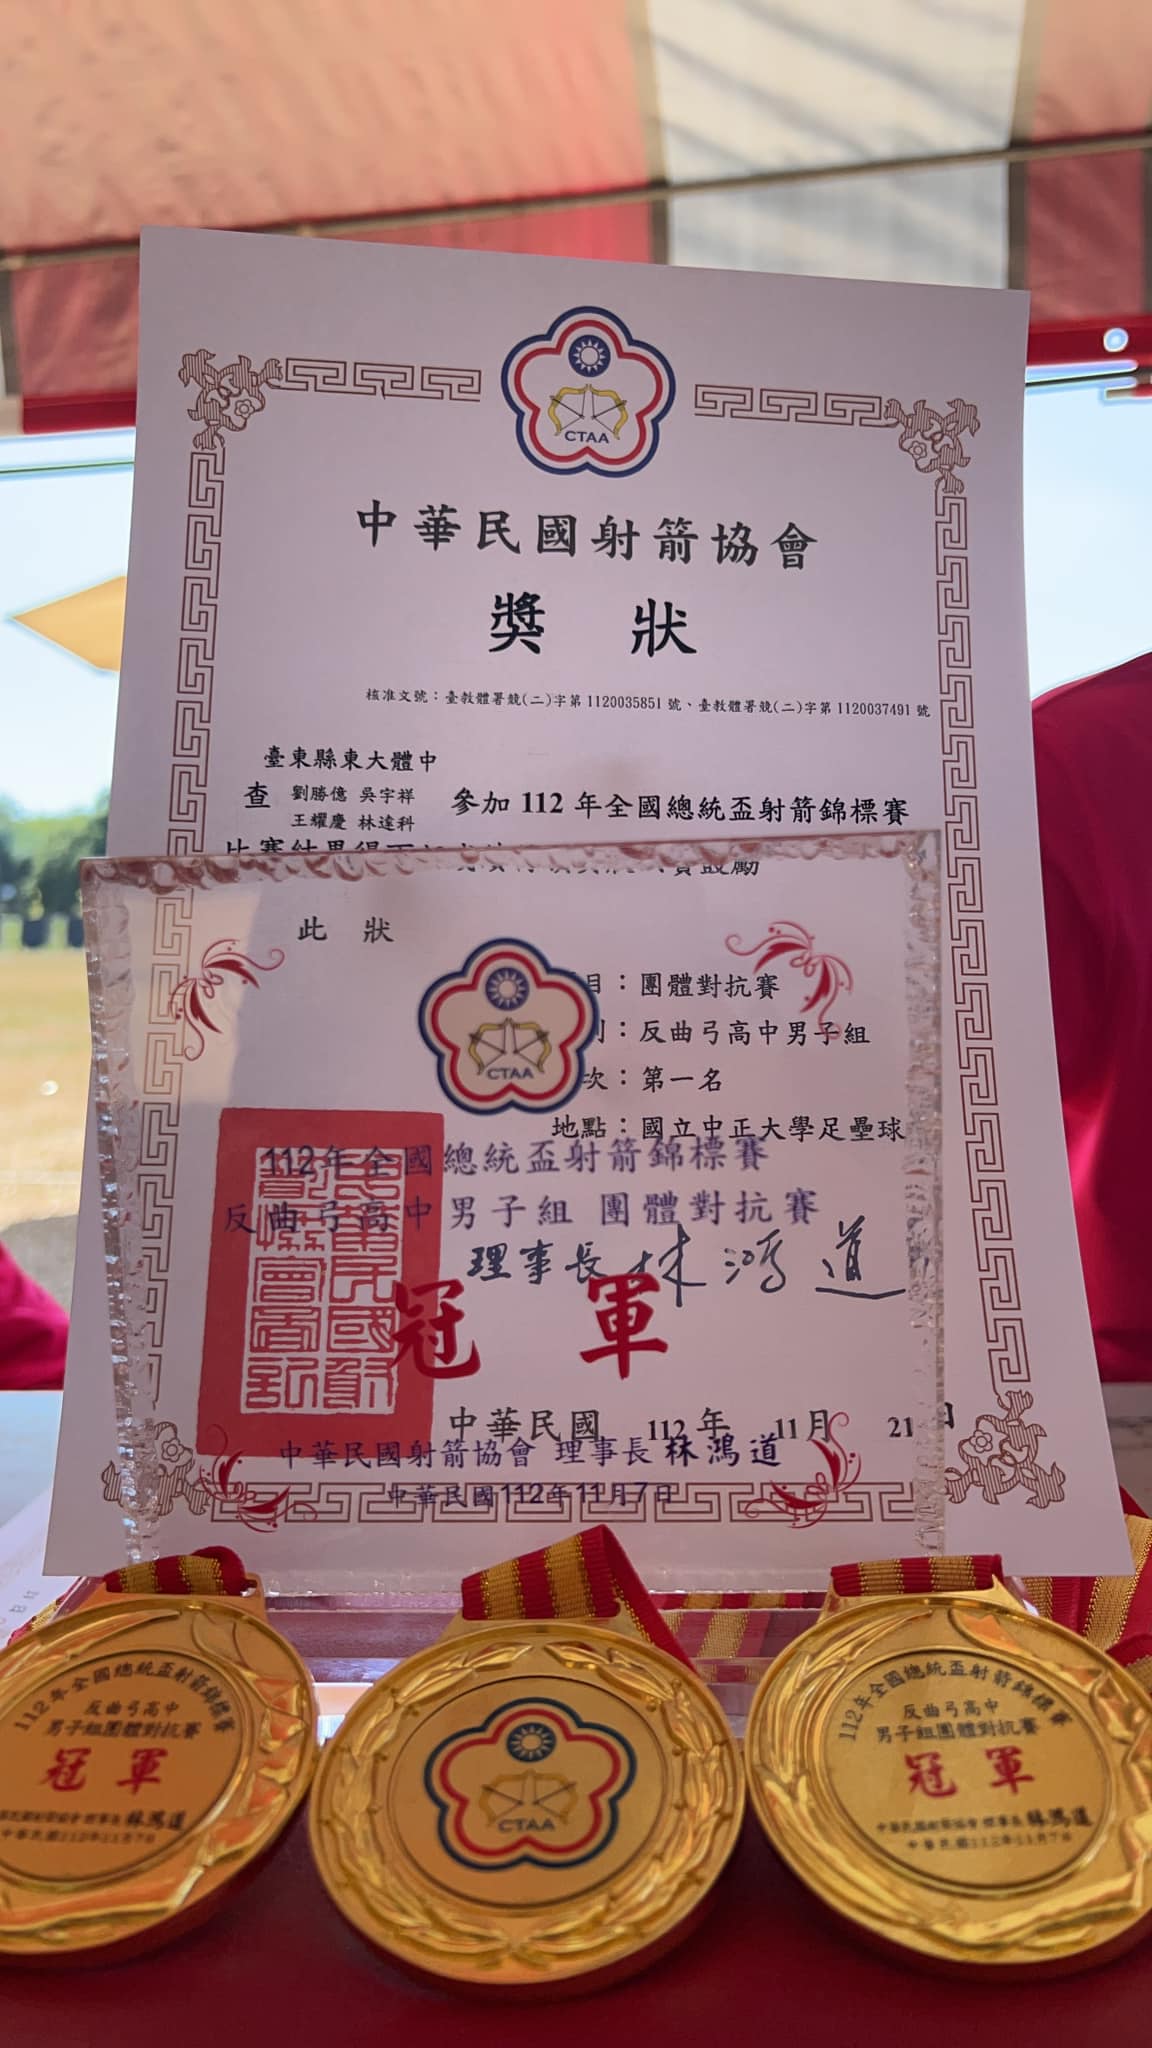 CTAA
中華民國射箭協會
獎 狀
核准文號：臺教體署競(二)字第1120035851號、臺教體署競(二)字第1120037491號
臺東縣東大體中
查 劉勝億 吳宇祥
王耀慶 林達科
參加 112 年全國總統盃射箭錦標賽
此 狀
目：團體對抗賽
：反曲弓高中男子組
次：第一名
地點：國立中正大學足壘球
理事長 林鴻道
中華民國 112年 11月 21日
CTAA
112年全國總統盃射箭錦標賽
反曲弓高中男子組 團體對抗賽
冠 軍
中華民國射箭協會 理事長 林鴻道
中華民國112年11月7日
112年全國總統盃射箭錦標賽
反曲弓高中
男子組團體對抗賽
冠 軍
民國射箭協會 理事長 林鴻道
中華民國112年11月7日
CTAA
112年全國總統盃射箭錦標賽
反曲弓高中
男子組團體對抗賽
冠 軍
中華民國射箭協會 理事長 林鴻道
中華民國112年11月7日